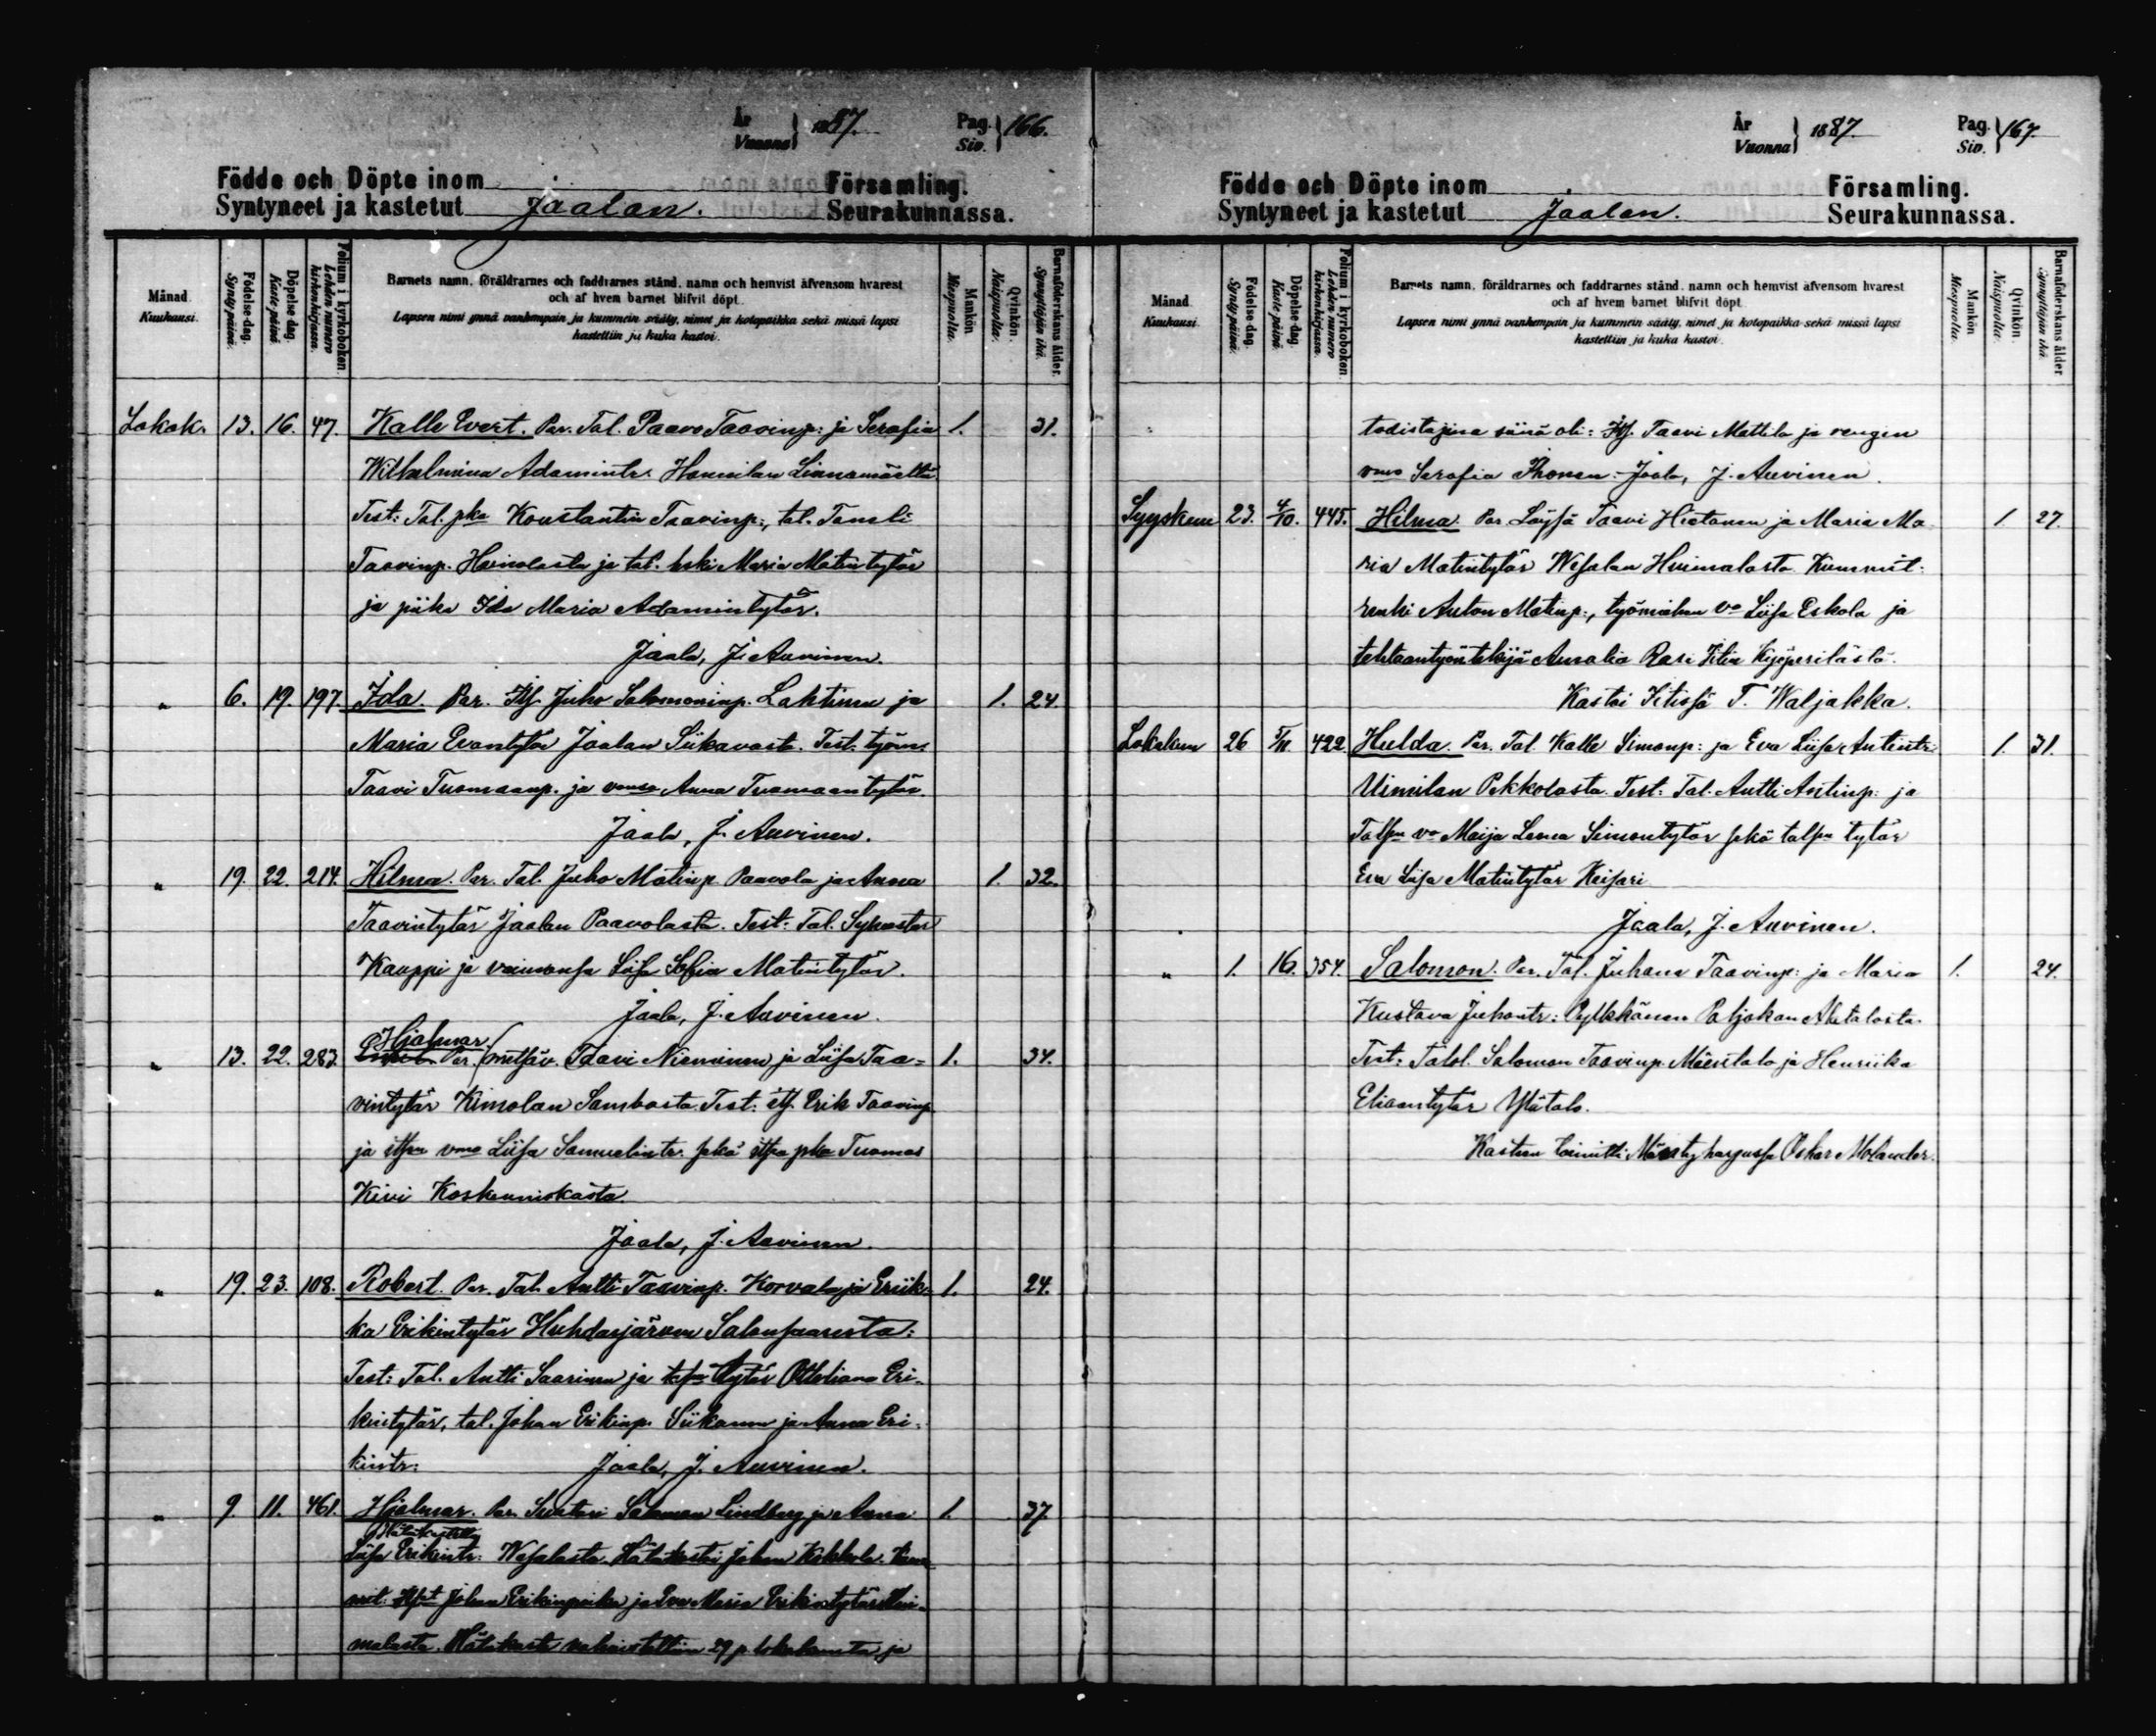 År
Vuonna } 1887. Pag.
Siv. } 166.
Födde och Döpte inom Församling.
Syntyneet ja kastetut Jaalan. Seurakunnassa.
Månad.
Kuukausi.
Födelse-dag.
Synty päivä.
Döpelse dag.
Kaste päivä.
Folium i kyrkoboken.
Lehden numero
kirkonkirjassa.
Barnets namn, föräldrarnes och faddrarnes stånd, namn och hemvist äfvensom hvarest
och af hvem barnet blifvit döpt.
Lapsen nimi ynnä vanhempain ja kummein sääty, nimet ja kotopaikka sekä missä lapsi
kastettiin ja kuka kastoi.
Mankön.
Miespuolia.
Qvinkön.
Naispuolia.
Barnaföderskans ålder.
Synnyttäjän ikä.
Lokak. 13. 16. 47. Kalle Evert. Par. Tal. Paavo Taavinp: ja Serafia 1. 31.
Wilhelmina Adamintr. Hannilan Linnamäeltä.
Test: Tal. pka Konstantin Taavinp:, tal. Taneli
Taavinp. Heinolasta ja tal. leski Maria Matintytär
ja piika Ida Maria Adamintytär.
Jaala, J. Auvinen.
" 6. 19. 197. Ida. Par. Its. Juho Salomoninp. Lahtinen ja 1. 24
Maria Evantytär Jaalan Siikavasta. Test. työm.
Taavi Tuomaanp. ja vmonsa Anna Tuomaantytär.
Jaala, J. Auvinen.
" 19. 22. 214. Hilma. Par. Tal. Juho Matinp. Paavola ja Anna 1. 32.
Taavintytär Jaalan Paavolasta. Test: Tal. Sylvester
Kauppi ja vaimonsa Liisa Sofia Matintytär.
Jaala, J. Auvinen.
Hjalmar
" 13. 22. 283. Par. metsäv. Taavi Nieminen ja Liisa Taa= 1. 34.
vintytär Kimolan Sambasta. Test: its. Erik Taavinp
ja itsn vmo Liisa Samuelintr. sekä itsn pka Tuomas
Kivi Koskenniskasta.
Jaala, J. Auvinen.
" 19. 23. 108. Robert. Par. Tal. Antti Taavinp. Korvala ja Eriik- 1. 24.
ka Erikintytär Huhdasjärven Salonsaaresta:
Test: Tal. Antti Saarinen ja tytär Ottoliana Eri-
kintytär, tal. Johan Erikinp. Siikanen ja Anna Eri-
kintr: Jaala, J. Auvinen.
" 9. 11. 461. Hjalmar. Par. Suutari Salomon Lindberg ja Anna 1. 37.
Liisa Erikintr: Wesalasta. Hätäkastoi Johan Kekkola. Kum
mit: Johan Erikinpoika ja Eva Maria Erikintytär Hui-
malasta. Hätäkaste vahvistettiin 29 p. lokakuuta ja
År
Vuonna } 1887. Pag.
Siv. } 167.
Födde och Döpte inom Församling.
Syntyneet ja kastetut Jaalan. Seurakunnassa.
Månad.
Kuukausi.
Födelse-dag.
Synty päivä.
Döpelse-dag.
Kaste päivä.
Folium i kyrkoboken.
Lehden numero
kirkonkirjassa.
Barnets namn, föräldrarnes och faddrarnes stånd, namn och hemvist äfvensom hvarest
och af hvem barnet blifvit döpt.
Lapsen nimi ynnä vanhempain ja kummein sääty, nimet ja kotopaikka sekä missä lapsi
kastettiin ja kuka kastoi.
Mankön.
Miespuolia.
Qvinkön.
Naispuolia.
Barnaföderskans ålder.
Synnyttäjän ikä.
todistajina siinä oli: Its. Taavi Mattila ja rengin
vmo Serafia Ihonen. Jaala, J. Auvinen.
Syyskuu 23. 4/10. 445. Hilma. Par. Löysä Taavi Hietanen ja Maria Ma- 1. 27.
ria Matintytär Wesalan Huimalasta. Kummit:
renki Anton Matinp:, työmiehen vo Liisa Eskola ja
tehtaantyöntekijä Amalia Rasi Iitin Kyöperilästä.
Kastoi Iitissä T. Waljakka.
Lokakuu 26 5/11. 422. Hulda. Par. Tal. Kalle Simonp: ja Eva Liisa Antintr: 1. 31.
Uimilan Pekkolasta. Test: Tal. Antti Antinp: ja
Talsn vo Maija Leena Simontytär sekä talsn tytär
Eva Liisa Matintytär Keisari
Jaala, J. Auvinen.
" 1. 16. 354. Salomon. Par. Tal. Juhana Taavinp: ja Maria 1. 24.
Kustava Juhontr: Pylkkänen Paljakan Ahtalasta.
Test: Talol. Salomon Taavinp. Mäentalo ja Henriika
Eliaantytär Ylätalo.
Kasteen toimitti Mäntyharjussa Oskar Molander.